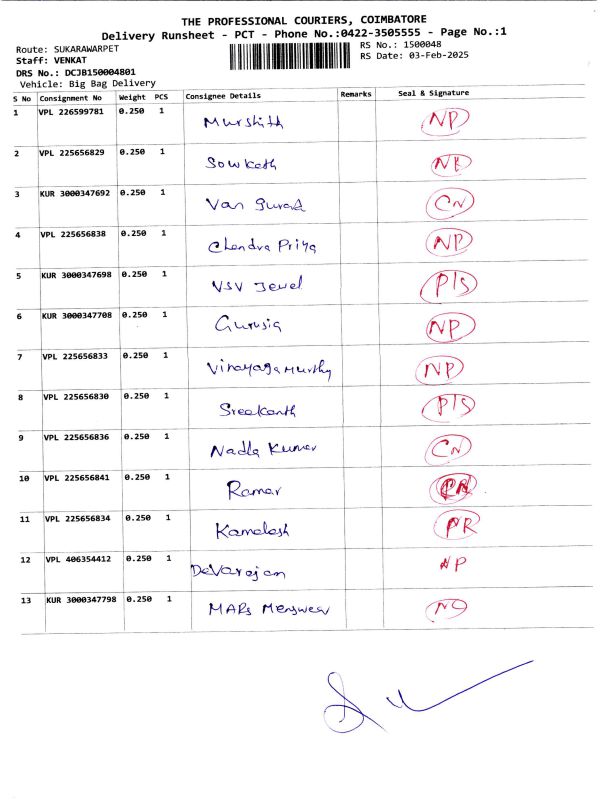 THE PROFESSIONAL COURIERS, COIMBATORE
Delivery Runsheet - PCT - Phone No.:0422-3505555 - Page No.:1
Route: SUKARAWARPET RS No.: 1500048
Staff: VENKAT RS Date: 03-Feb-2025
DRS No.: DCJB150004801
Vehicle: Big Bag Delivery
S No Consignment No Weight PCS Consignee Details Remarks Seal & Signature
1 VPL 226599781 0.250 1 Murshith NP
2 VPL 225656829 0.250 1 Sowkath
3 KUR 3000347692 0.250 1 Van CN
4 VPL 225656838 0.250 1 Chandra Priya NP
5 KUR 3000347698 0.250 1 VSV Jewel P/S
6 KUR 3000347708 0.250 1 NP
7 VPL 225656833 0.250 1 Vinayaga Murthy NP
8 VPL 225656830 0.250 1 Sreekanth P/S
9 VPL 225656836 0.250 1 Kumar CN
10 VPL 225656841 0.250 1 Ramar
11 VPL 225656834 0.250 1 Kamalesh
12 VPL 406354412 0.250 1 Devarajan NP
13 KUR 3000347798 0.250 1 MARs Menswear